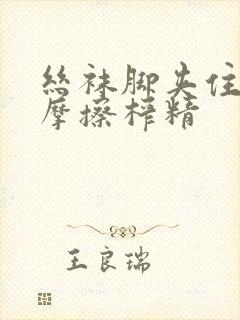 丝袜脚夹住
摩擦榨精
王良瑞